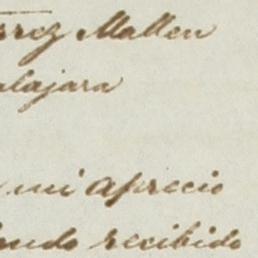 rrez Mallen
alajara
mi aprecio
recibido